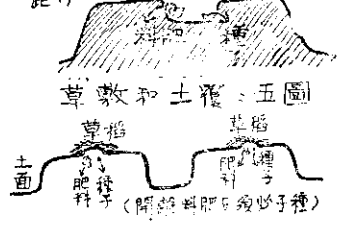 種
圖五：覆土和敷草
稻草
稻草
土面
肥料
種子
肥料
種子
（種子必須与肥料離開）